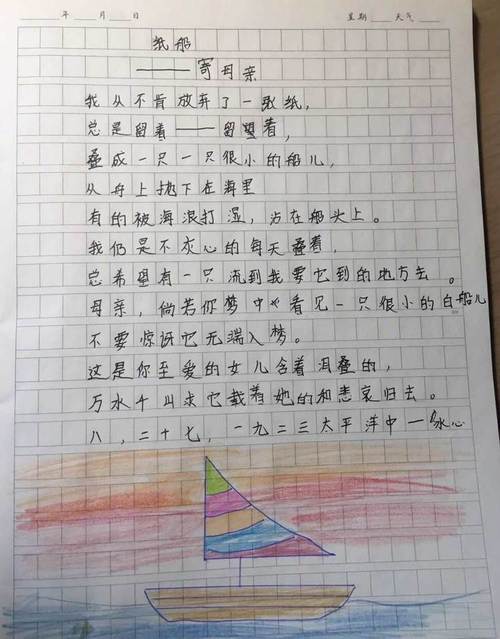 年 月 日 星期 天气
纸船
——寄母亲
我从不肯放弃了一张纸,
总是留着——留望着,
叠成一只一只很小的船儿,
从舟上抛下在海里
有的被海浪打湿,沾在船头上。
我仍是不灰心的每天叠着,
总希望有一只流到我要它到的地方去。
母亲,倘若你梦中看见一只很小的白船儿
不要惊讶它无端入梦。
这是你至爱的女儿含着泪叠的,
万水千山求它载着她的和悲哀归去。
八,二十七,一九二三太平洋中—冰心